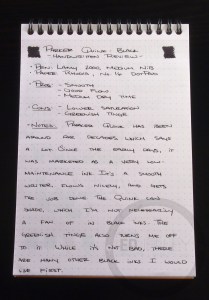 Parker Quink - Black
- Handwritten Review -
- Pen: Lamy 2000, Medium Nib
- Paper: Rhodia, No. 16 DotPad
- Pros: - Smooth
- Good Flow
- Medium Dry Time
- Cons: - Lower Saturation
- Greenish Tinge
- Notes: Parker Quink has been
around for decades which says
a lot. Since the early days, it
was marketed as a very low-
maintenance ink. It's a smooth
writer, flows nicely, and gets
the job done. The Quink
shade, which I'm not necessarily
a fan of in black inks. The
greenish tinge also turns me off
to it. While it's not bad, there
are many other black inks I would
use first.